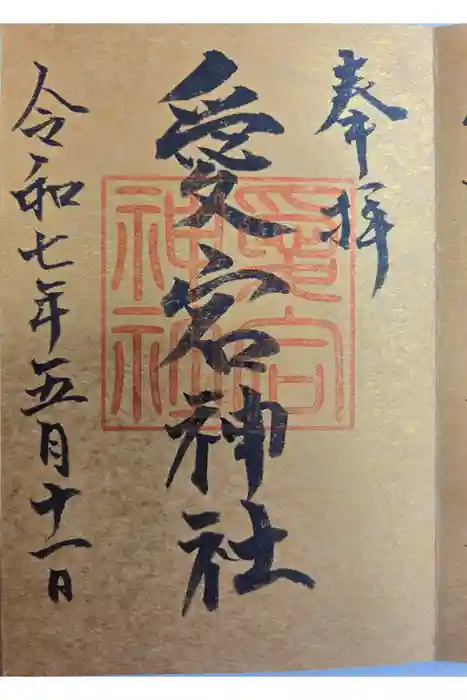 奉拝
愛宕神社
愛宕
神社
令和七年五月十一日